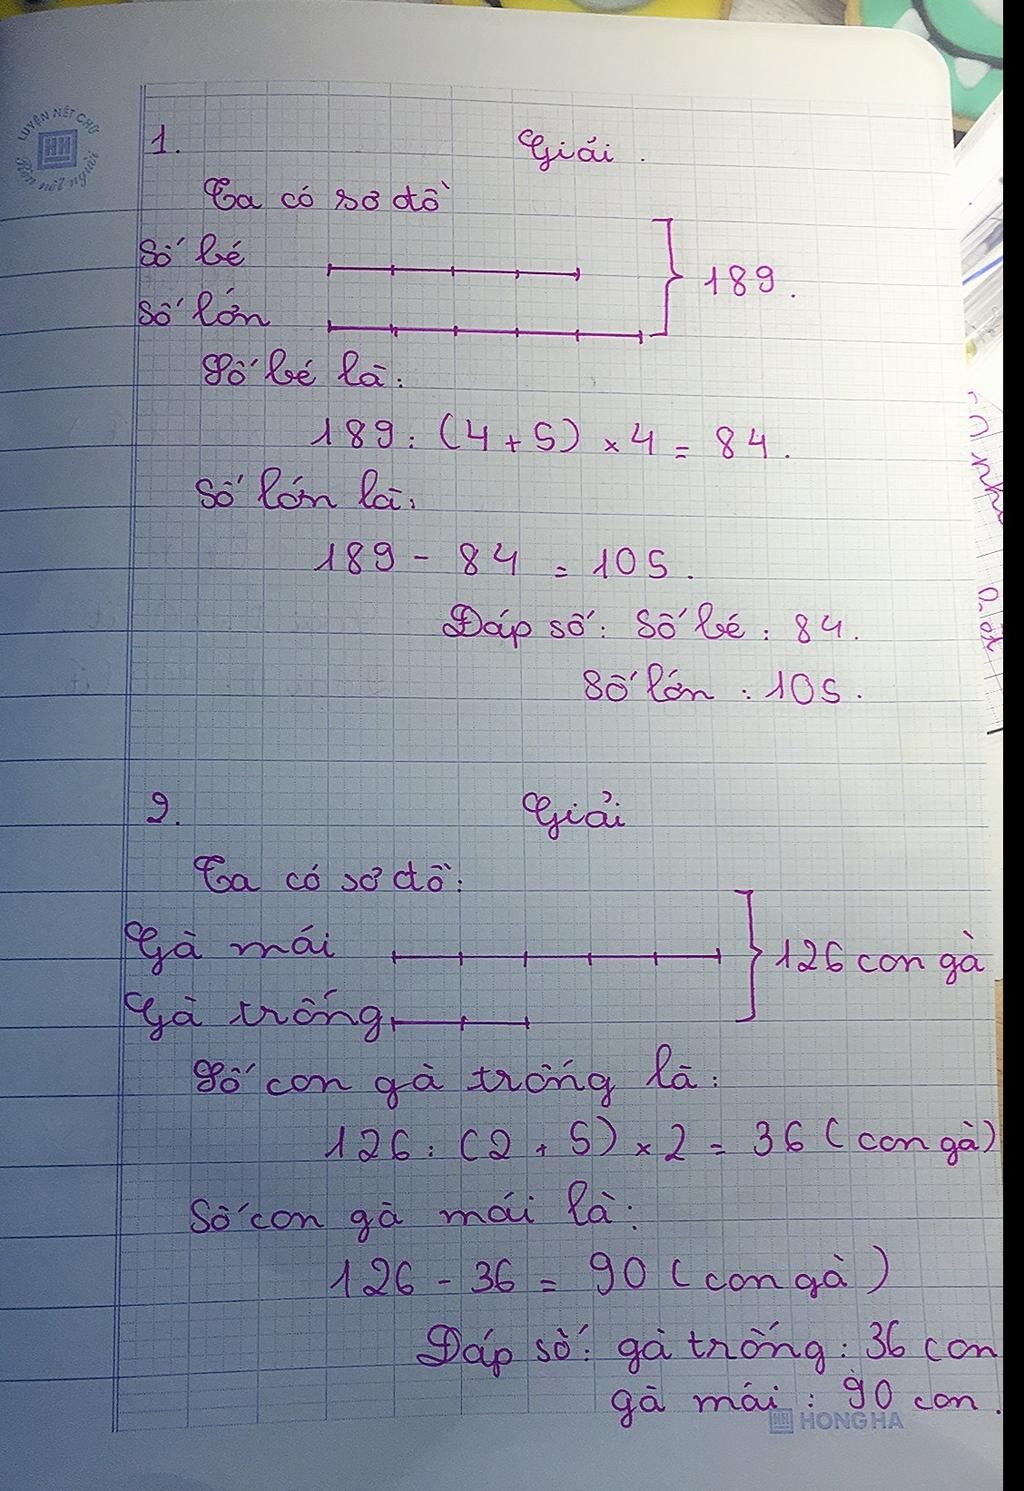 LUYỆN NÉT CHỮ
Rèn nết người
1. Giải.
Ta có sơ đồ
Số bé
189.
Số lớn
Số bé là:
189 : (4 + 5) × 4 = 84.
Số lớn là:
189 - 84 = 105.
Đáp số: Số bé : 84.
Số lớn : 105.
2. Giải
Ta có sơ đồ:
Gà mái
126 con gà
Gà trống
Số con gà trống là:
126 : (2 + 5) × 2 = 36 (con gà)
Số con gà mái là:
126 - 36 = 90 (con gà)
Đáp số: gà trống: 36 con
gà mái : 90 con.
HONG HA